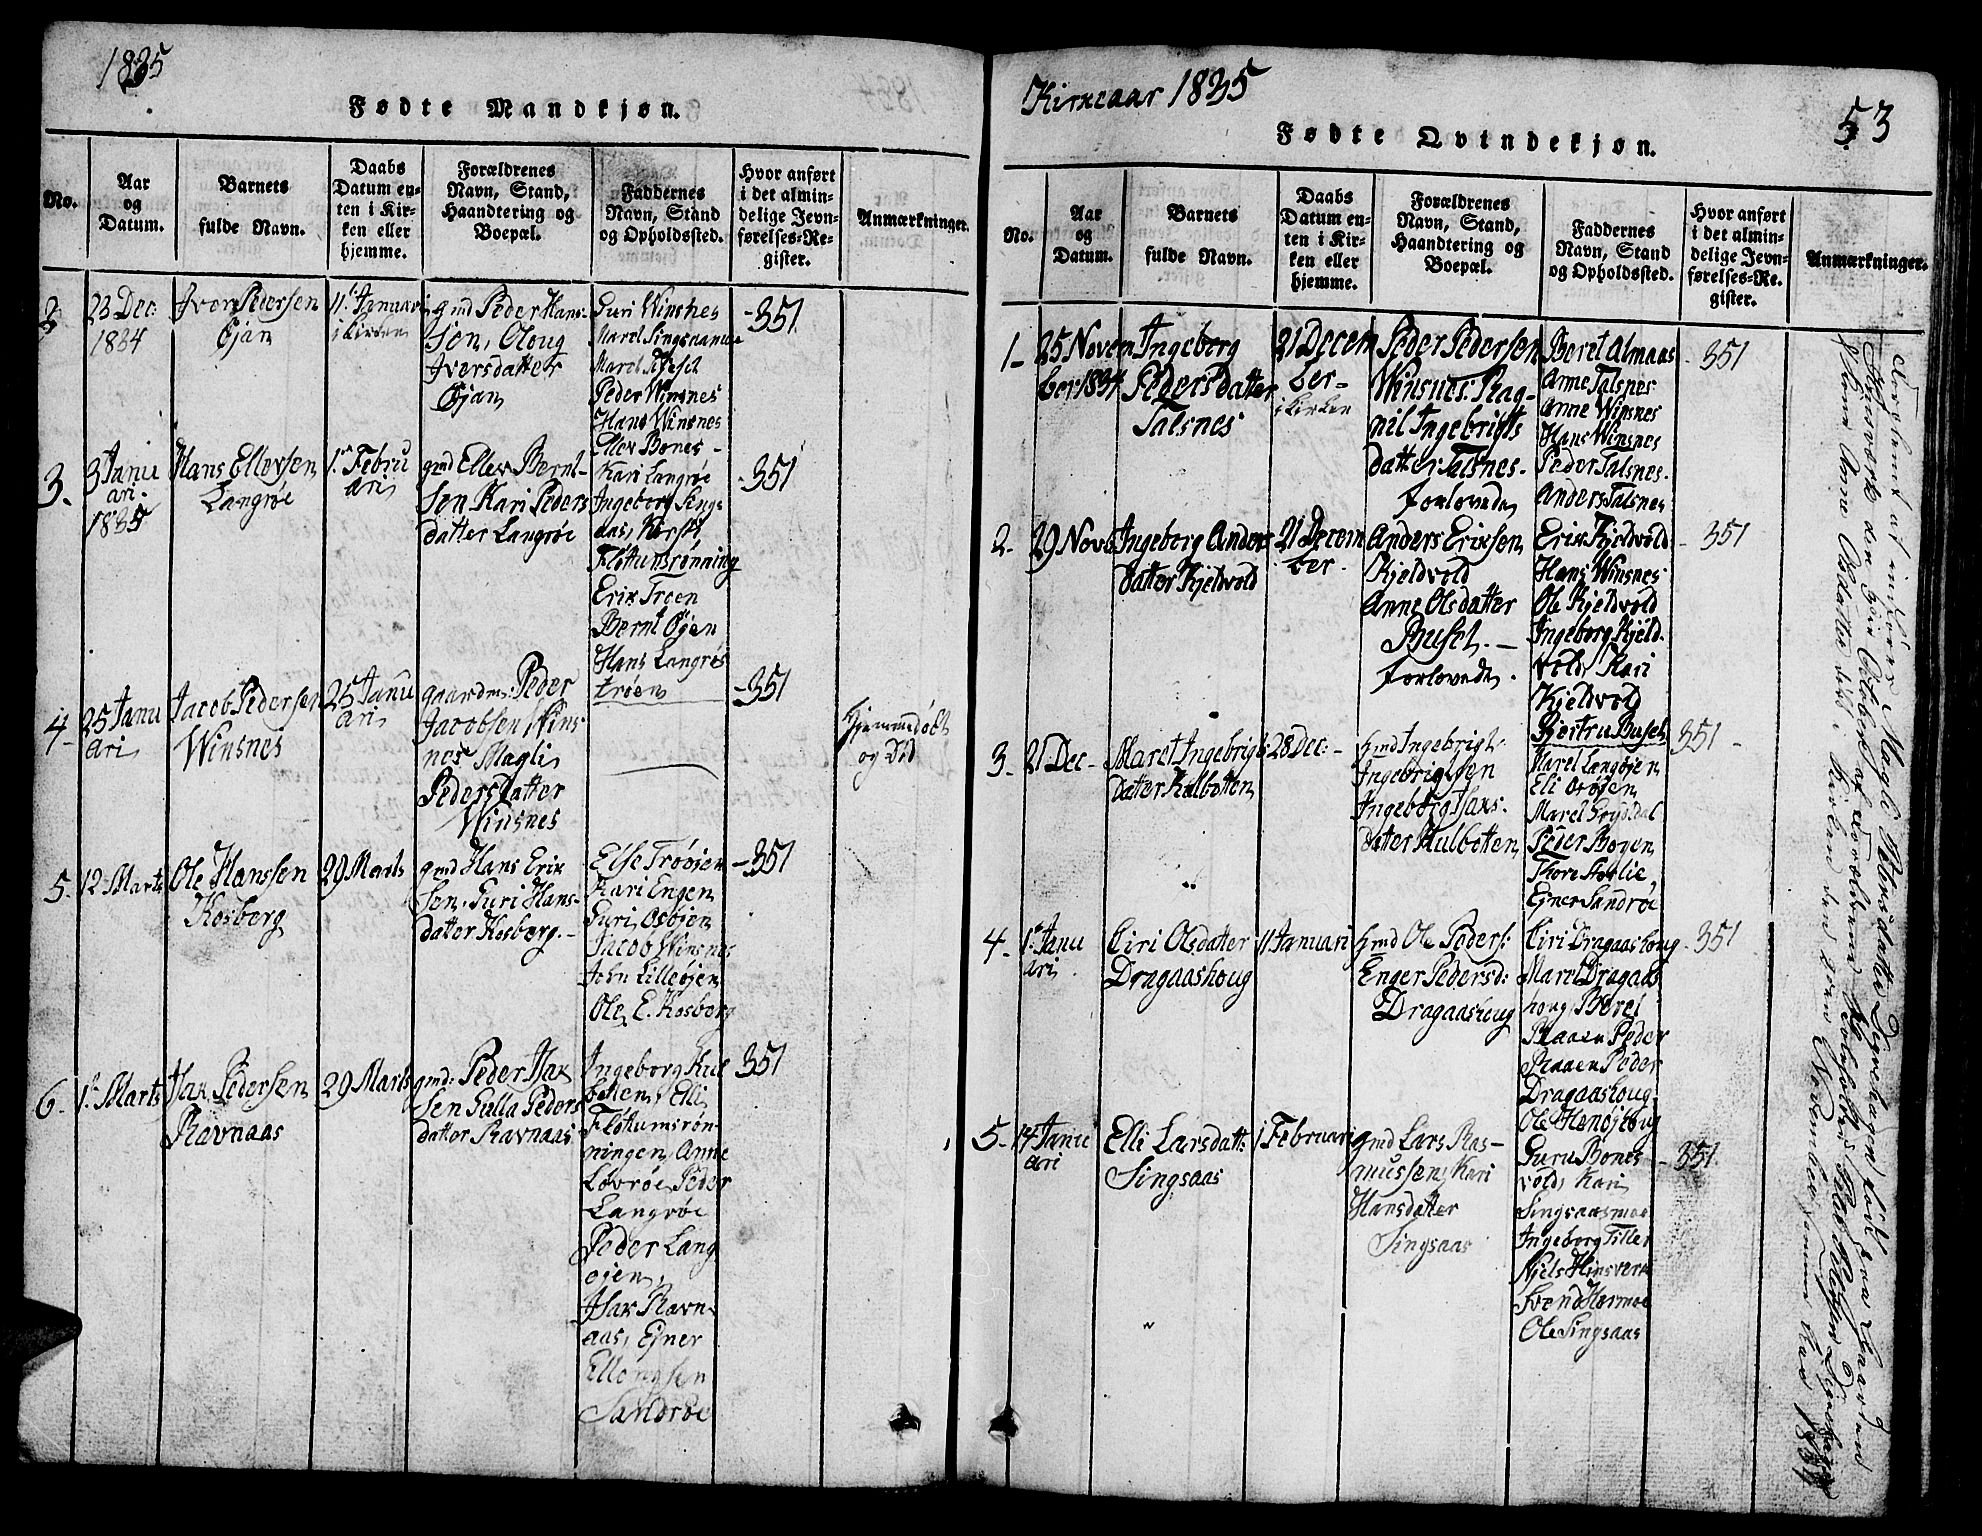 1835
Fødte Mandkjøn.
No.
Aar
og
Datum.
Barnets
fulde Navn.
Daabs
Datum en-
ten i Kir-
ken eller
hjemme.
Forældrenes
Navn, Stand,
Haandtering og
Boepæl.
Faddernes
Navn, Stand
og Opholdssted.
Hvor anført
i det almin-
delige Jevn-
førelses-Re-
gister.
Anmærkninger.
23 Dec:
1834
Iver Pedersen
Øjan
11te Januari
i Kirken
gmd Peder Hans-
sen, Oloug
Iversdatter
Øjan
Guri Winsnes
Peder Winsnes
Hans Winsnes
Eller Bones
351
3.
3 Janu
ari.
1835
Hans Ellersen
Langrøe
1te Febru
ari
gmd Eller Bernt-
sen Kari Peders
datter Langrøe
Kari Langrøe
Ingeborg Sings
aas,
Fløttumsrønning
Erik Troen
Bernt Øjen
Hans Langrøs
trøen
351
4
25 Janu
ari
Jacob Pedersen
Winsnes
25 Janu
ari
gaardm: Peder
Jacobsen Wins
nes Magli
Pedersdatter
Winsnes
351
Hjemmedøbt
og Død
5.
12 Marts
Ole Hanssen
Kosberg
29 Marts
gmd Hans Erik
sen, Guri Hans-
datter Kosberg.
Else Trøøjen
Kari Engen
Guri Osøjen
Jacob Winsnes
John Lilleøjen
Ole E. Kosberg
351
6
1te Marts
Isak Pedersen
Ravnaas
29 Marts
gmd: Peder Isak
sen Gulla Peders
datter Ravnaas
Ingeborg Kul
botten, Elli
Fløttumsrøn-
ningen, Anne
Lovrøe Peder
Langrøe
Peder Lang
øjen,
Isak Ravn-
aas, Ejner
Ellongsen
Sandrøe
351
Kirkeaar 1835
53
Fødte Qvindekjøn.
No.
Aar
og
Datum.
Barnets
fulde Navn.
Daabs
Datum en-
ten i Kir-
ken eller
hjemme.
Forældrenes
Navn, Stand,
Haandtering og
Boepæl.
Faddernes
Navn, Stand
og Opholdssted.
Hvor anført
i det almin-
delige Jevn-
førelses-Re-
gister.
Anmærkninger.
1
25 Novem
ber 1834
Ingeborg
Pedersdatter
Talsnes
21 Decem
ber
i Kirken
Peder Pedersen
Winsnes. Rag-
nil Ingebrigts
datter Talsnes.
forlovede
Beret Almaas
Anne Talsnes
Anne Winsnes
Hans Winsnes
Peder Talsnes.
Anders Talsnes
351
2
29 Novb
Ingeborg Anders
datter Kjeldvold
21 Decem
ber
Anders Eriksen
Kjeldvold
Anne Olsdatter
Buset.
forlovede.
Erik Kjeldvold
Hans Winsnes
Ole Kjeldvold
Ingeborg Kjeld
vold, Kari
Kjeldvold
Bjertru Buset
351
3
21 Dec
Maret Ingebrigts
datter Kulbotten
28 Dec:
hmd Ingebrigt
Ingebrigtsen
Ingeborg Isaks
datter Kulbotten
Marel Langøjen
Eli Osøjen
Peder Boyen
Thore Støelie
Ejner Sandrøe
351
4
1te Janu
ari
Ciri Olsdatter
Dragaashoug
11 Januari
hmd Ole Peders:
Enger Pedersd:
Dragaashoug
Ciri Dragaashoug
Maret Dragaas
houg, Beret
Raaen Peder
Raaen Peder
Dragaashoug.
351
5
14 Janu
ari
Elli Larsdatt:
Singsaas
1 Februari
gmd Lars Ras-
mussen, Kari
Hansdatter
Singsaas
Guru Bones
vold, Kari
Singsaasmoe
Ingeborg Tiller
Njels Hinsverk
Svend Hermoe
Ole Singsaas
351